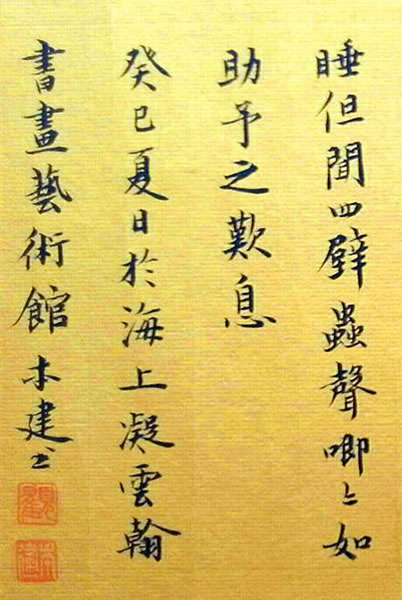 睡但聞四壁蟲聲唧〻如
助予之歎息
癸巳夏日於海上凝雲翰
書畫藝術館 木建書